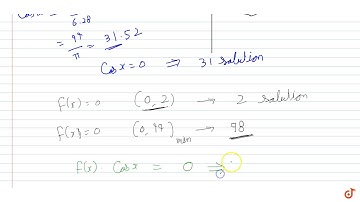 6.28
= 99/π = 31.52
Cos x = 0 ⇒ 31 solution
f(x) = 0 (0, 2) → 2 solution
f(x) = 0 (0, 99) min → 98
f(x) · Cos x = 0 ⇒